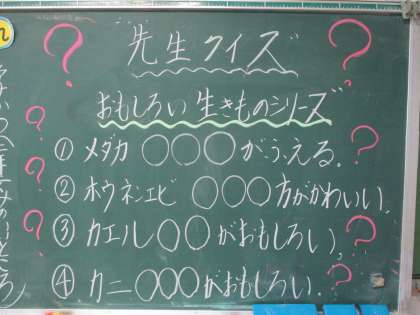 先生クイズ
おもしろい生きものシリーズ
① メダカ ○○○がふえる。
② ホウネンエビ ○○○方がかわいい。
③ カエル○○がおもしろい。
④ カニ○○○がおもしろい。